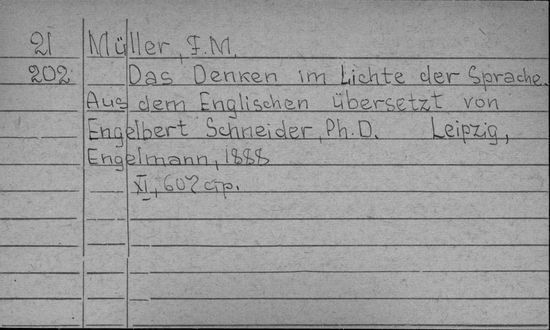 21 Müller, F.M.
202 Das Denken im Lichte der Sprache.
Aus dem Englischen übersetzt von
Engelbert Schneider, Ph.D. Leipzig,
Engelmann, 1888
XI, 607 стр.